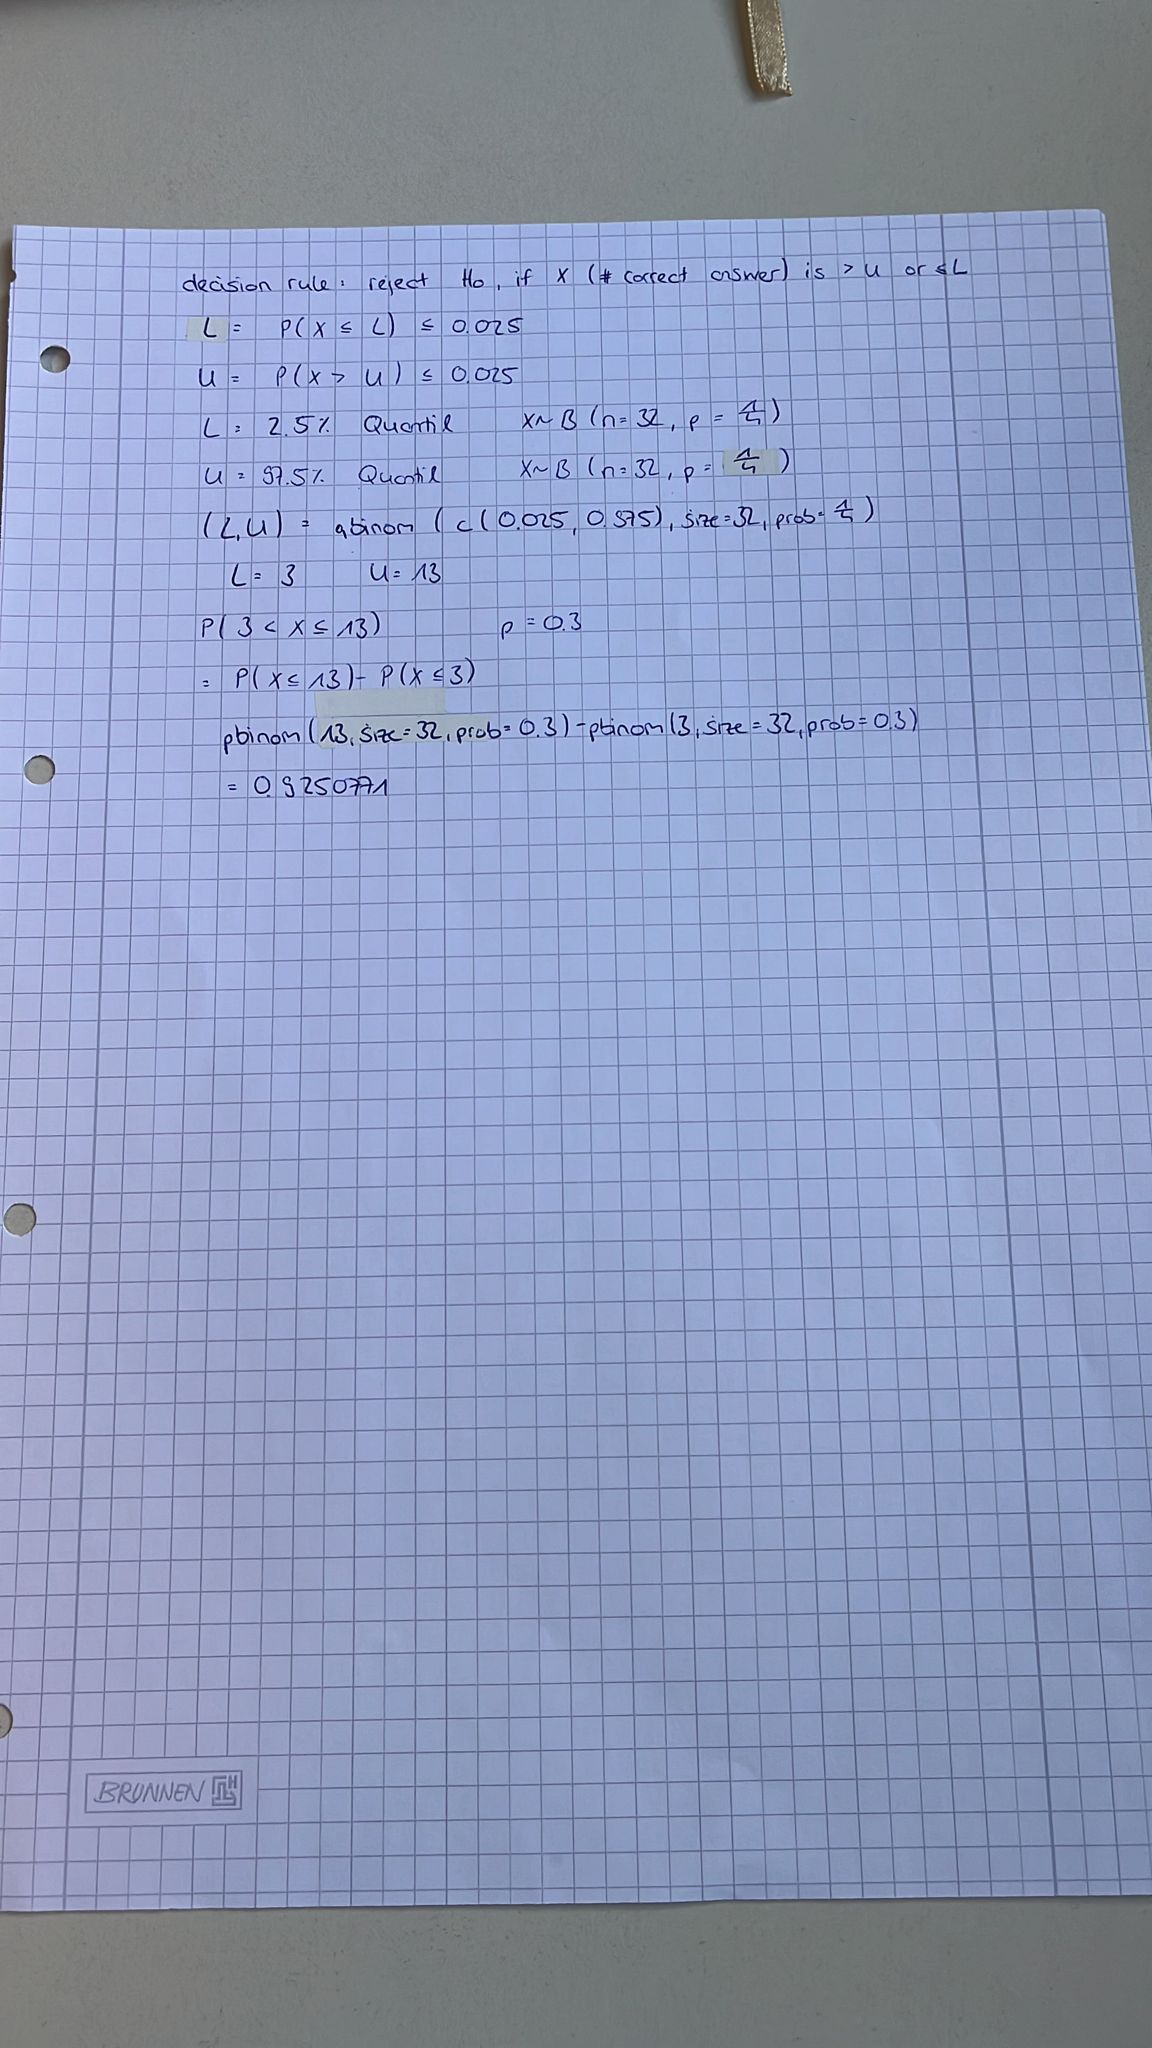 decision rule: reject H₀, if X (# correct answer) is > U or ≤ L
L = P(X ≤ L) ≤ 0.025
U = P(X > U) ≤ 0.025
L = 2.5% Quantil X~B (n=32, p = 1/4)
U = 97.5% Quantil X~B (n=32, p = 1/4)
(L,U) = qbinom (c(0.025, 0.975), size=32, prob= 1/4)
L = 3 U = 13
P(3 < X ≤ 13) p = 0.3
= P(X ≤ 13) - P(X ≤ 3)
pbinom(13, size=32, prob=0.3)-pbinom(3, size=32, prob=0.3)
= 0.9250771
BRUNNEN